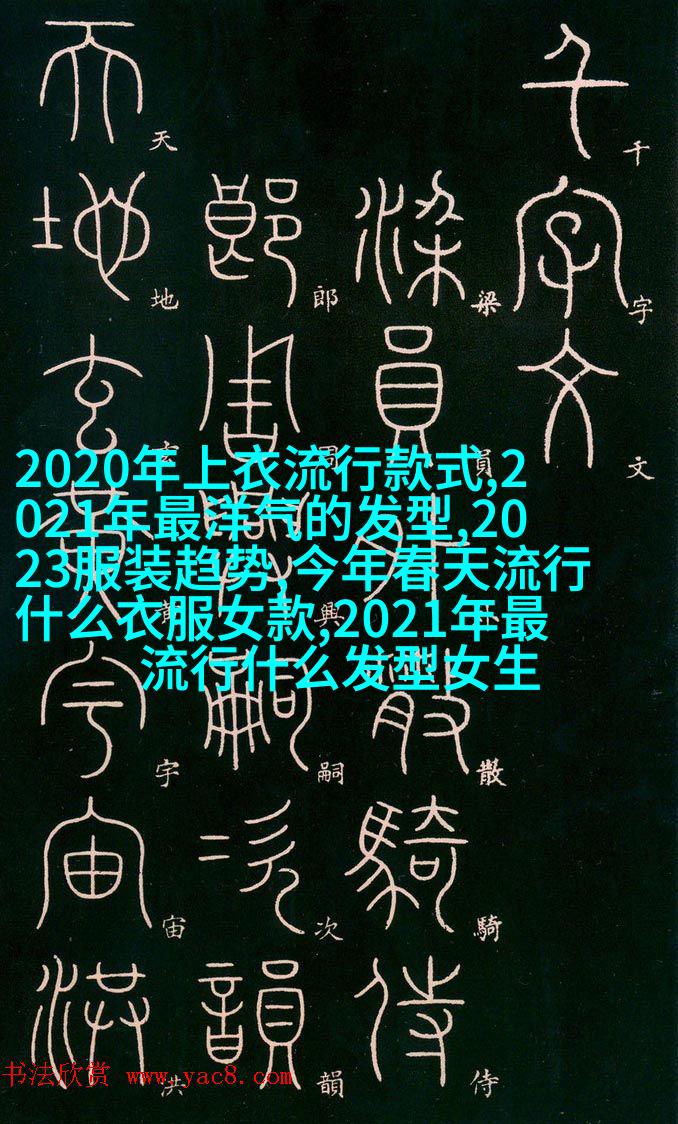 千字文
梁員外散騎侍
郎周興嗣次韻
天地玄黃宇宙洪
2020年上衣流行款式,2
021年最洋气的发型,20
23服装趋势,今年春天流行
什么衣服女款,2021年最
流行什么发型女生
书法欣赏 www.yac8.com